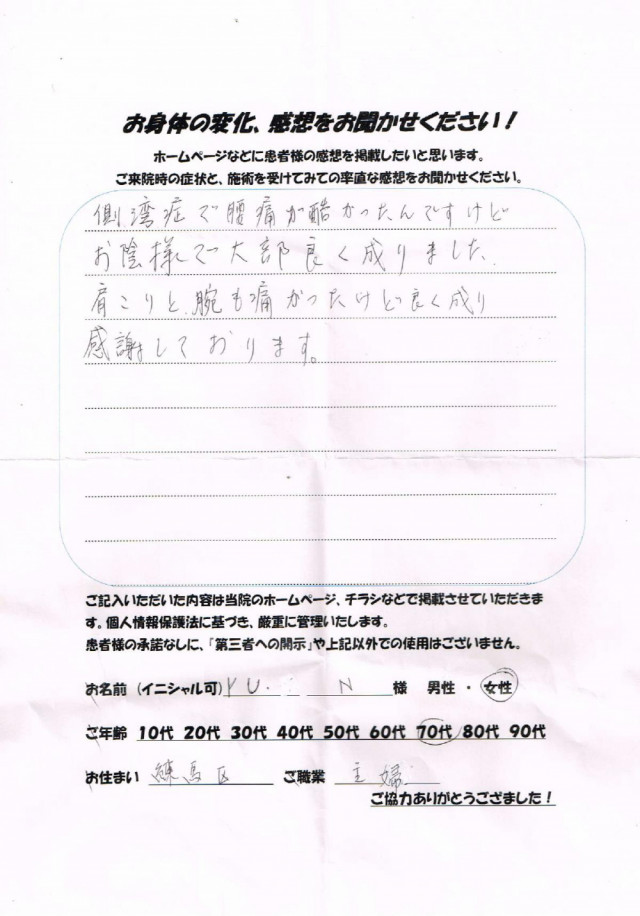 お身体の変化、感想をお聞かせください！
ホームページなどに患者様の感想を掲載したいと思います。
ご来院時の症状と、施術を受けてみての率直な感想をお聞かせください。
側湾症で腰痛が酷かったんですけど
お陰様で大部良く成りました、
肩こりと、腕も痛かったけど良く成り
感謝しております。
ご記入いただいた内容は当院のホームページ、チラシなどで掲載させていただきま
す。個人情報保護法に基づき、厳重に管理いたします。
患者様の承諾なしに、「第三者への開示」や上記以外での使用はございません。
お名前（イニシャル可） YU. N 様 男性 ・ 女性
ご年齢 10代 20代 30代 40代 50代 60代 70代 80代 90代
お住まい 練馬区 ご職業 主婦
ご協力ありがとうござました！